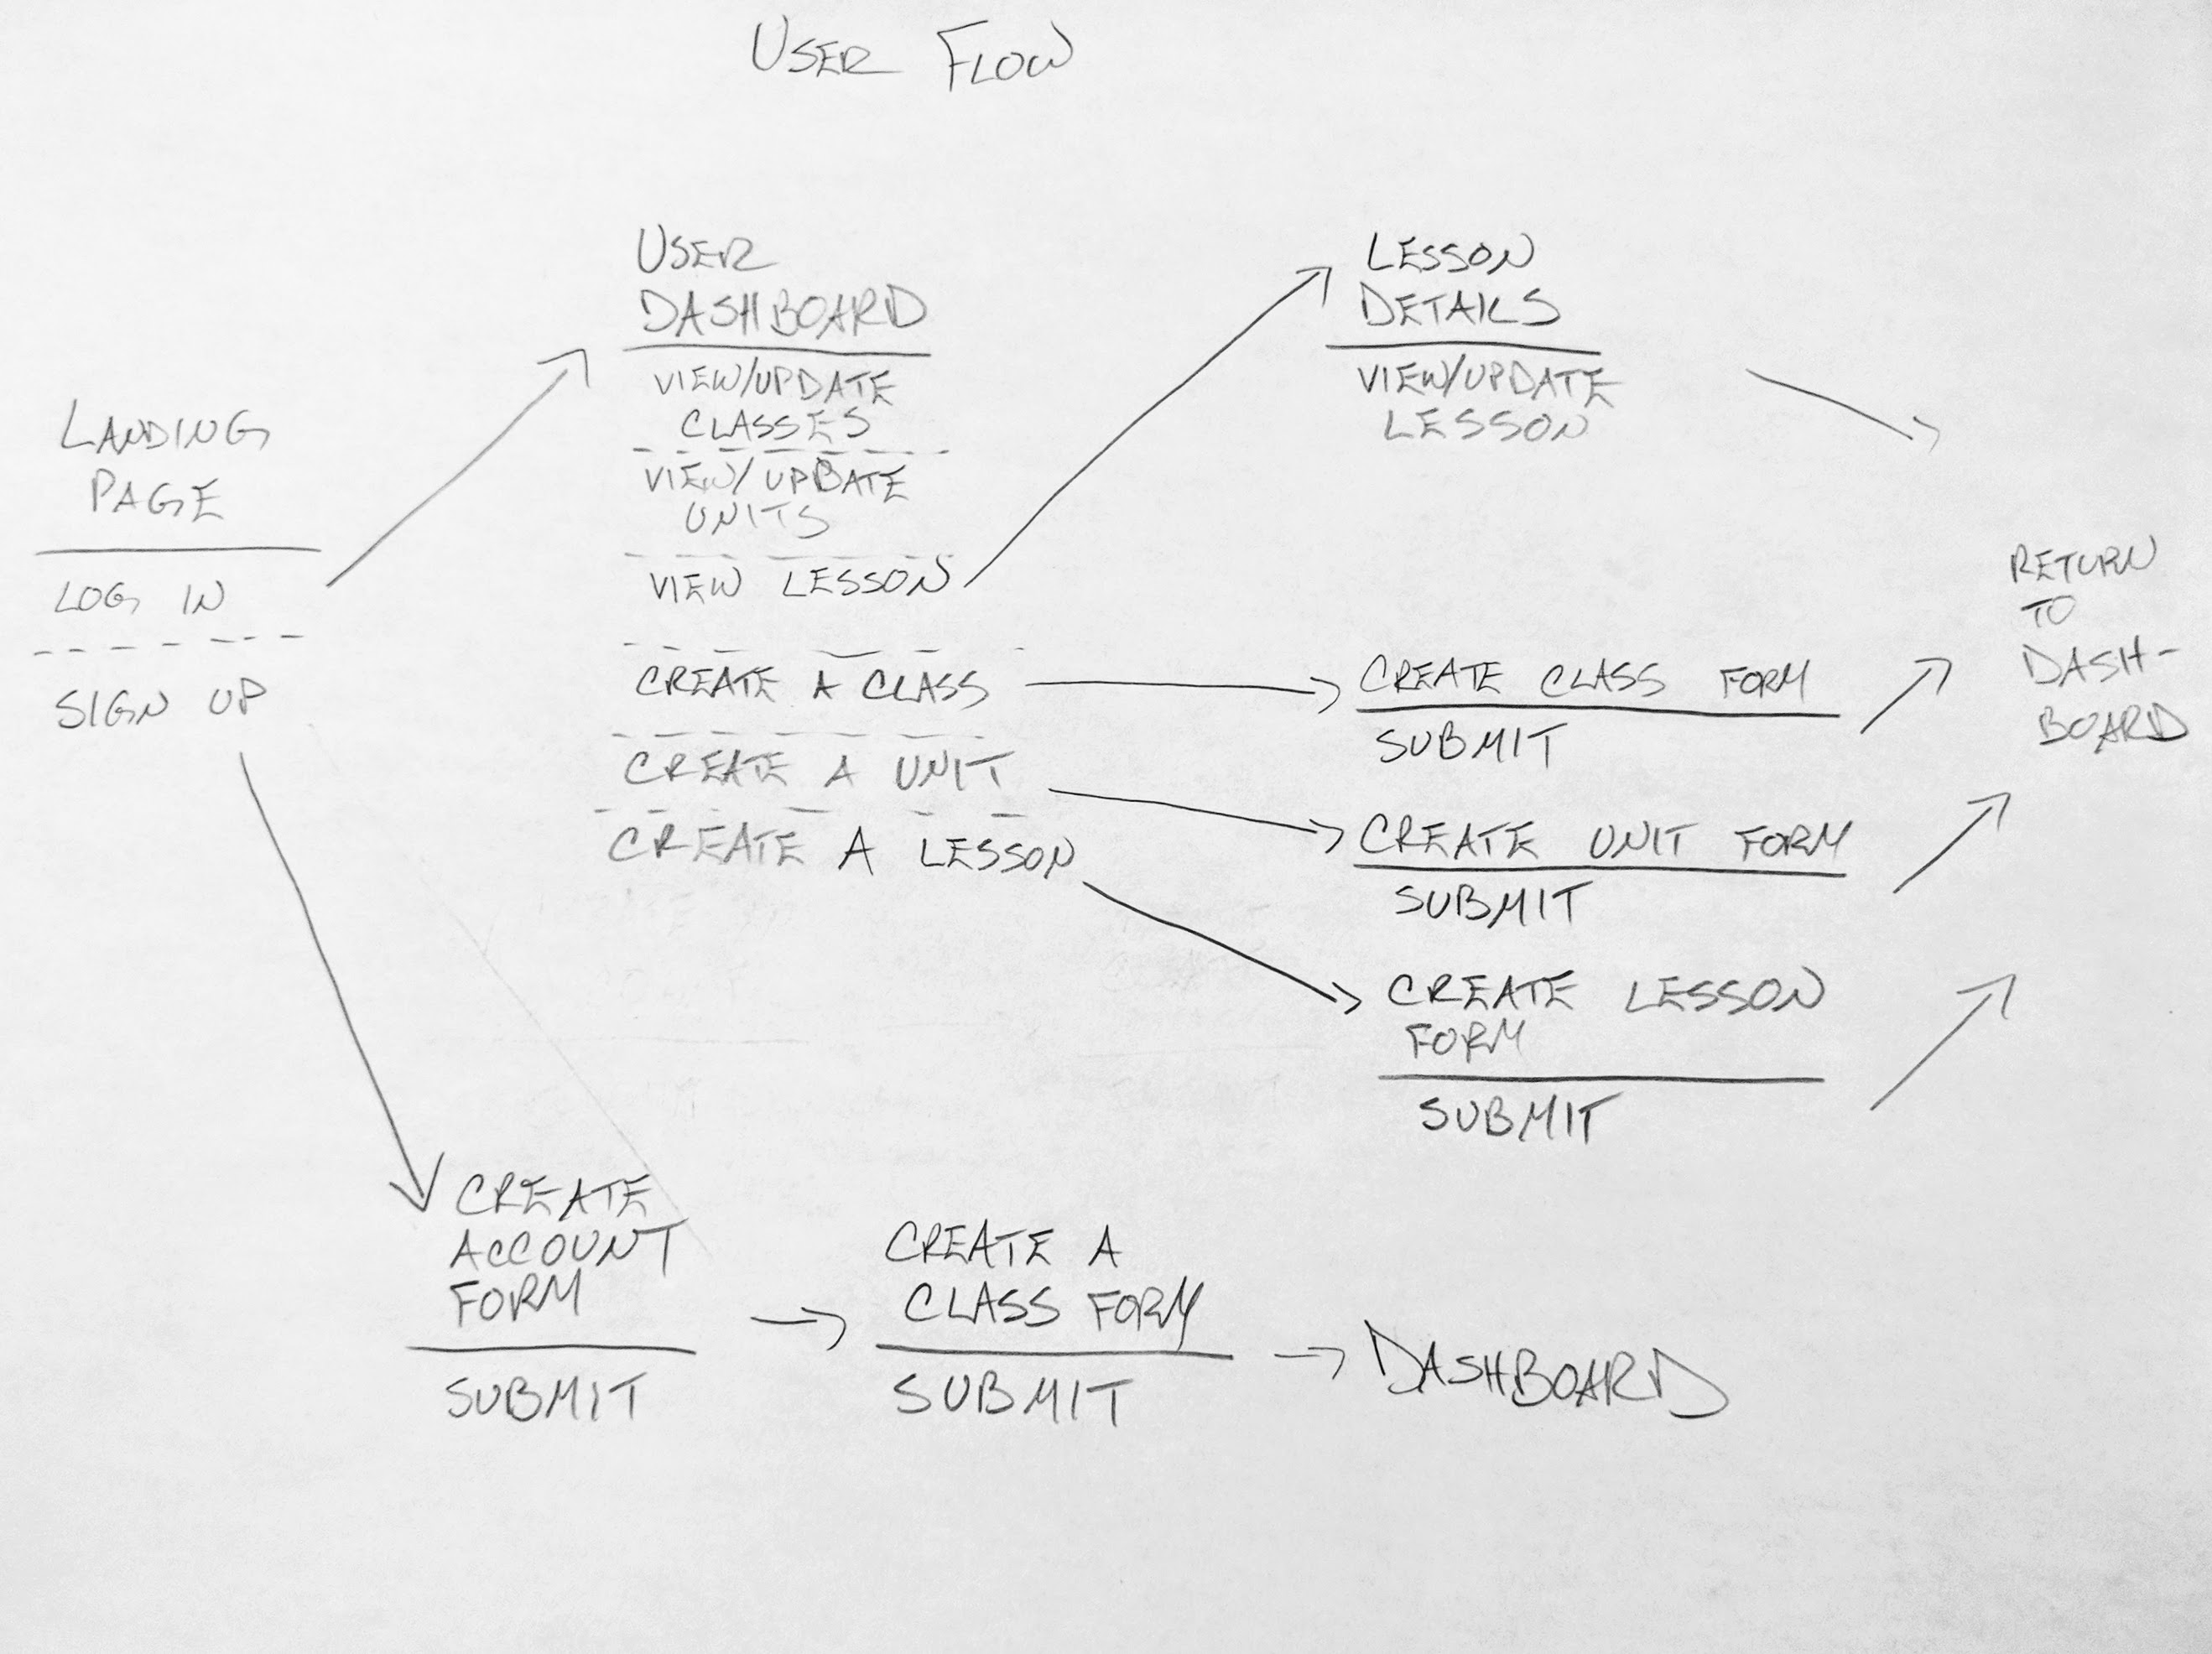 USER FLOW
LANDING
PAGE
LOG IN
SIGN UP
USER
DASHBOARD
VIEW/UPDATE
CLASSES
VIEW/UPDATE
UNITS
VIEW LESSON
CREATE A CLASS
CREATE A UNIT
CREATE A LESSON
LESSON
DETAILS
VIEW/UPDATE
LESSON
CREATE CLASS FORM
SUBMIT
CREATE UNIT FORM
SUBMIT
CREATE LESSON
FORM
SUBMIT
RETURN
TO
DASH-
BOARD
CREATE
ACCOUNT
FORM
SUBMIT
CREATE A
CLASS FORM
SUBMIT
DASHBOARD